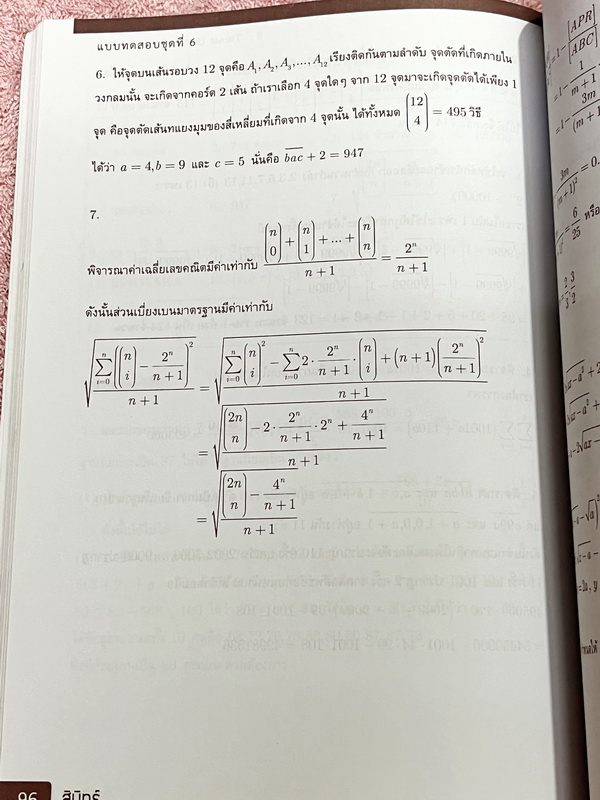 แบบทดสอบชุดที่ 6
6. ให้จุดบนเส้นรอบวง 12 จุดคือ A₁, A₂, A₃, ..., A₁₂ เรียงติดกันตามลำดับ จุดตัดที่เกิดภายใน
วงกลมนั้น จะเกิดจากคอร์ด 2 เส้น ถ้าเราเลือก 4 จุดใดๆ จาก 12 จุดมาจะเกิดจุดตัดได้เพียง 1
จุด คือจุดตัดเส้นทแยงมุมของสี่เหลี่ยมที่เกิดจาก 4 จุดนั้น ได้ทั้งหมด (12 4) = 495 วิธี
ได้ว่า a = 4, b = 9 และ c = 5 นั่นคือ \overline{bac} + 2 = 947
7.
พิจารณาค่าเฉลี่ยเลขคณิตมีค่าเท่ากับ \frac{\binom{n}{0} + \binom{n}{1} + ... + \binom{n}{n}}{n+1} = \frac{2^n}{n+1}
ดังนั้นส่วนเบี่ยงเบนมาตรฐานมีค่าเท่ากับ
\sqrt{\frac{\sum_{i=0}^{n} \left(\binom{n}{i} - \frac{2^n}{n+1}\right)^2}{n+1}} = \sqrt{\frac{\sum_{i=0}^{n} \binom{n}{i}^2 - \sum_{i=0}^{n} 2 \cdot \frac{2^n}{n+1} \cdot \binom{n}{i} + (n+1)\left(\frac{2^n}{n+1}\right)^2}{n+1}}
= \sqrt{\frac{\binom{2n}{n} - 2 \cdot \frac{2^n}{n+1} \cdot 2^n + \frac{4^n}{n+1}}{n+1}}
= \sqrt{\frac{\binom{2n}{n} - \frac{4^n}{n+1}}{n+1}}
96 สิปิทธ์